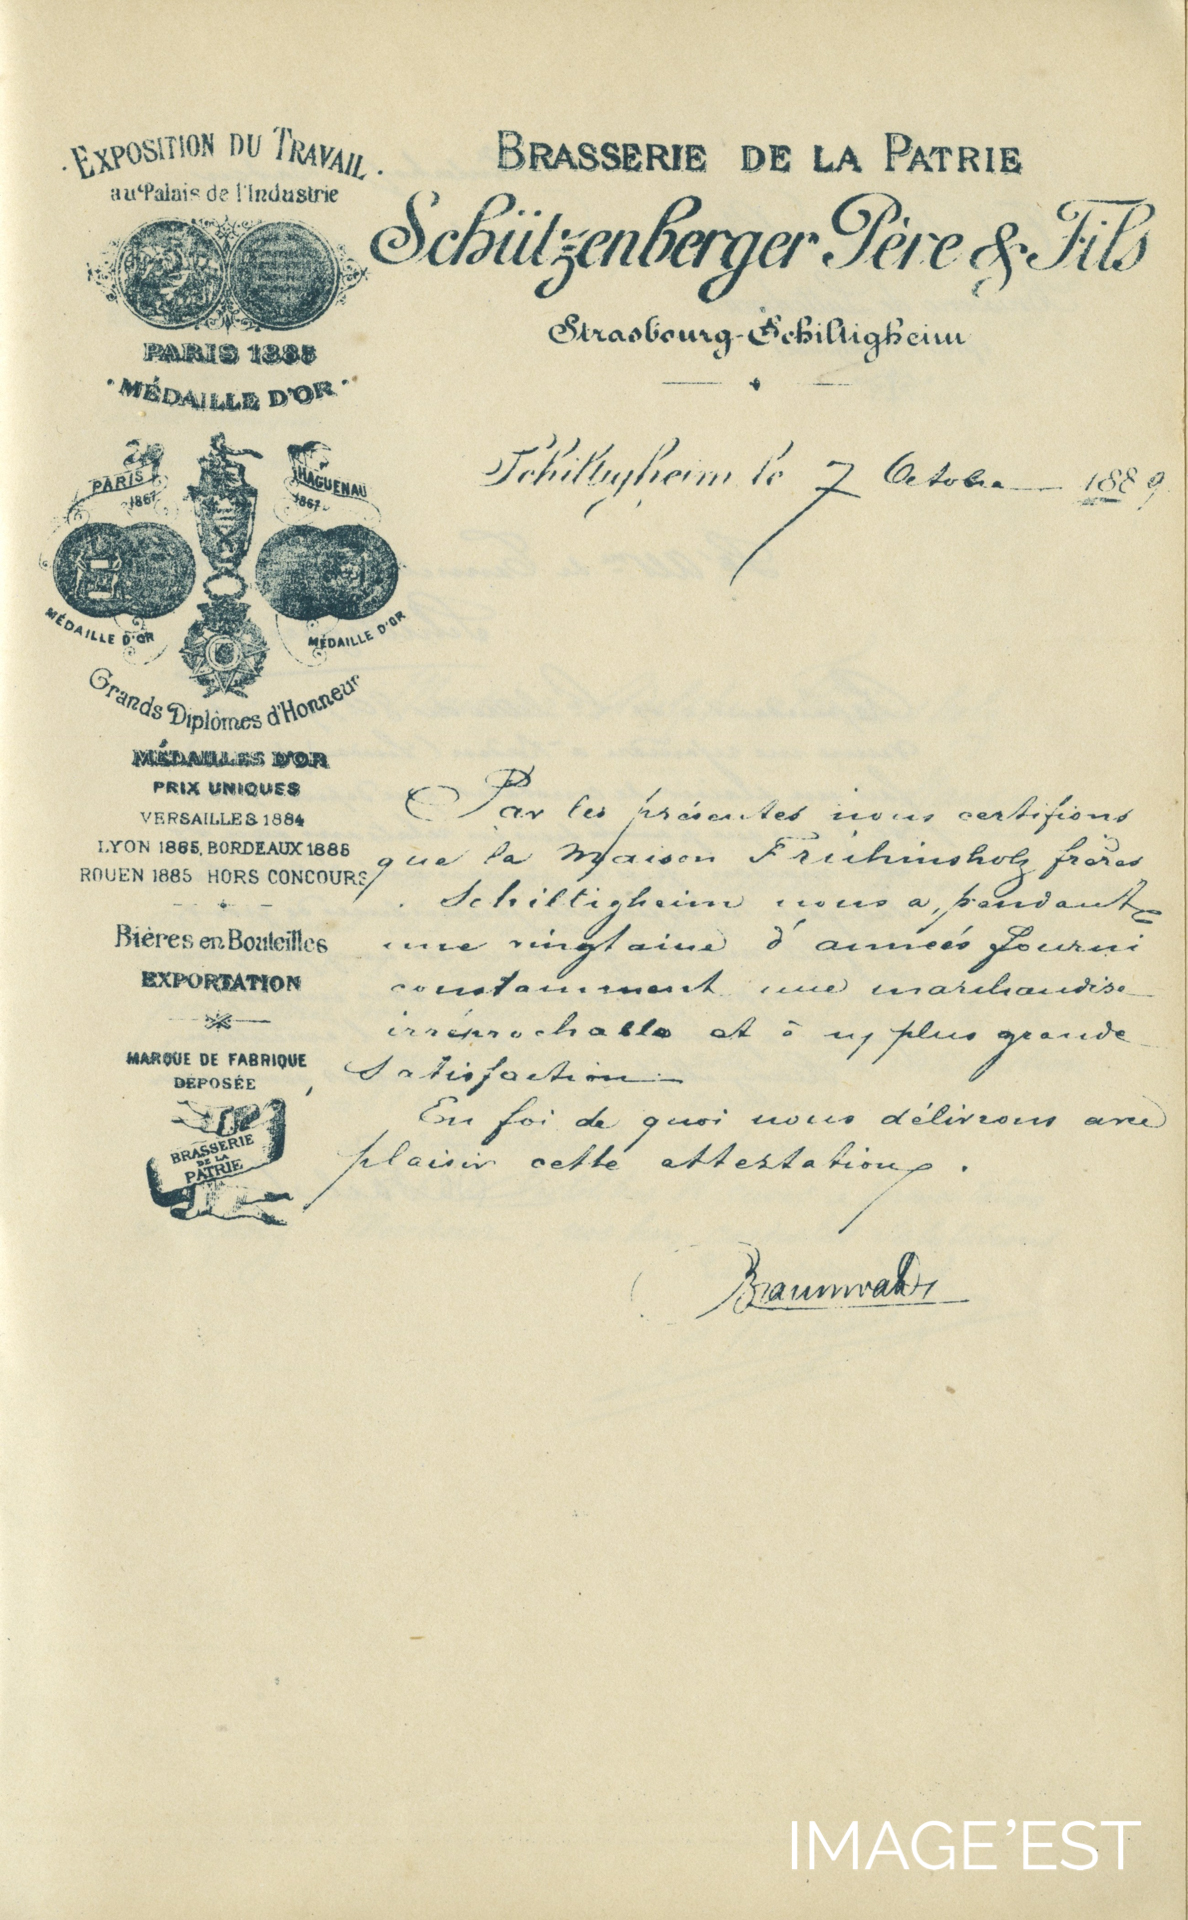 EXPOSITION DU TRAVAIL
au Palais de l'Industrie
PARIS 1885
MÉDAILLE D'OR
PARIS
1867
HAGUENAU
1867
MÉDAILLE D'OR
MÉDAILLE D'OR
Grands Diplômes d'Honneur
MÉDAILLES D'OR
PRIX UNIQUES
VERSAILLES 1884
LYON 1885, BORDEAUX 1885
ROUEN 1885 HORS CONCOURS
Bières en Bouteilles
EXPORTATION
MARQUE DE FABRIQUE
DÉPOSÉE
BRASSERIE
DE LA
PATRIE
BRASSERIE DE LA PATRIE
Schützenberger Père & Fils
Strasbourg-Schiltigheim
Schiltigheim le 7 Octobre 1889
Par les présentes nous certifions
que la Maison Frühinsholz frères
Schiltigheim nous a, pendant
une vingtaine d'années fourni
constamment une marchandise
irréprochable et à n/ plus grande
satisfaction
En foi de quoi nous délivrons avec
plaisir cette attestation.
Braunwald
IMAGE'EST